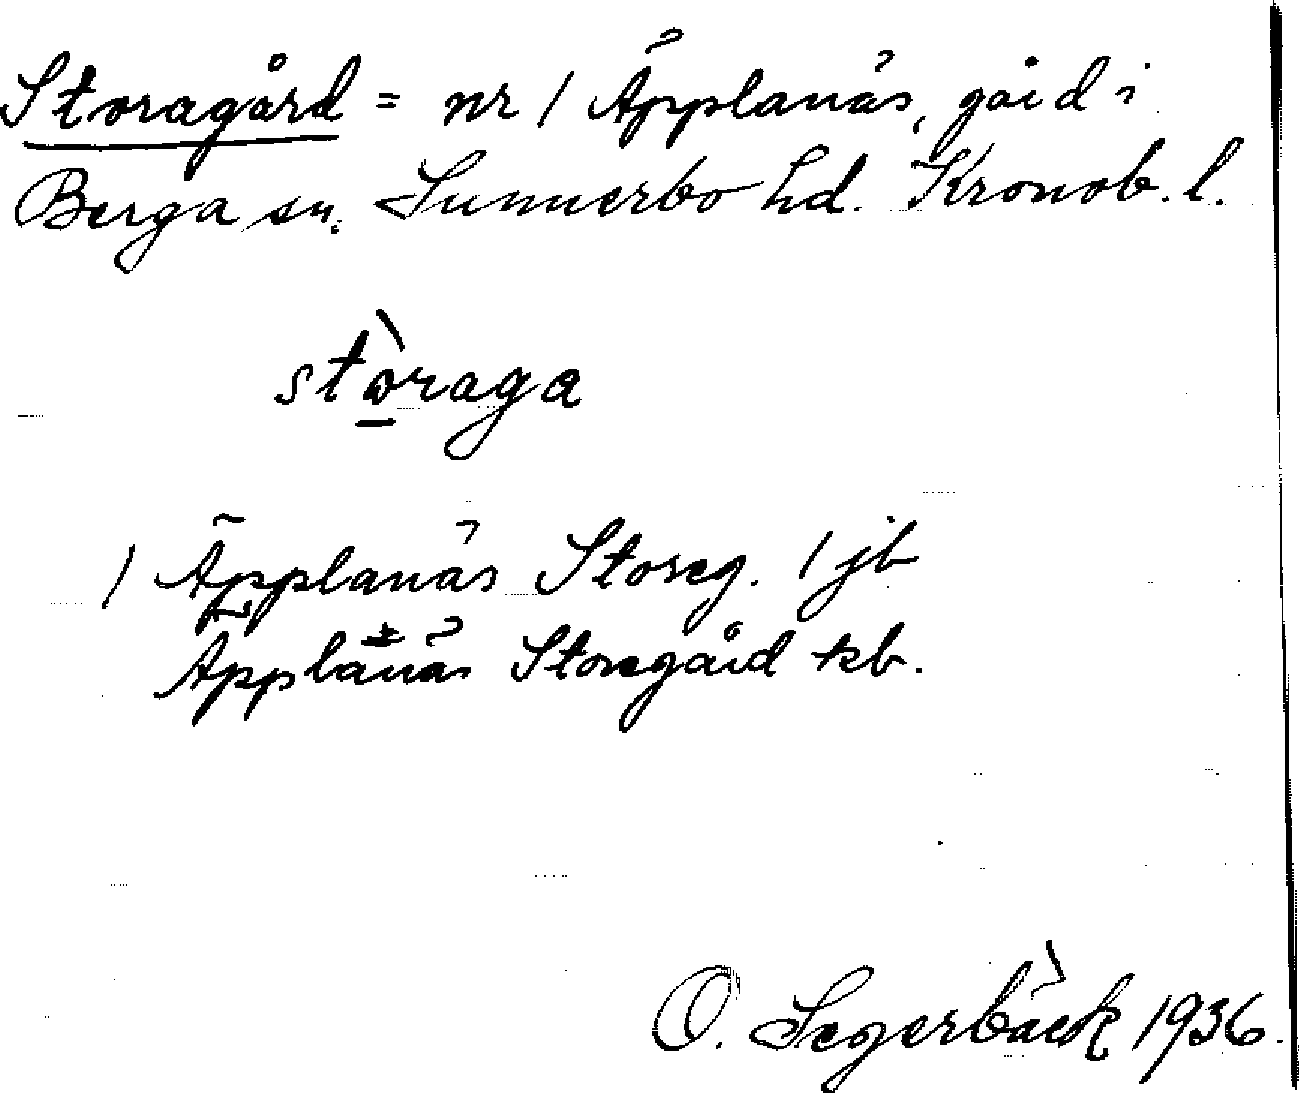 Storagård = nr 1 Äpplanäs, gård i
Berga sn. Sunnerbo hd. Kronob. l.
stòraga
1 Äpplanäs Storeg. 1 jb
Äpplanäs Storegård kb.
O. Segerbäck 1936.